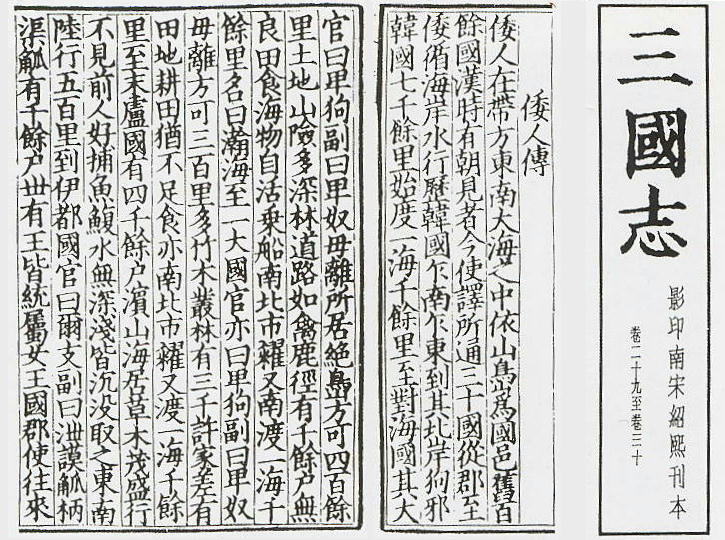 三國志
影印南宋紹熙刊本
卷二十九至卷三十
倭人傳
倭人在帶方東南大海之中依山島爲國邑舊百
餘國漢時有朝見者今使譯所通三十國從郡至
倭循海岸水行歷韓國乍南乍東到其北岸狗邪
韓國七千餘里始度一海千餘里至對海國其大
官曰卑狗副曰卑奴毋離所居絶島方可四百餘
里土地山險多深林道路如禽鹿徑有千餘戶無
良田食海物自活乗船南北市糴又南渡一海千
餘里名曰瀚海至一大國官亦曰卑狗副曰卑奴
毋離方可三百里多竹木叢林有三千許家差有
田地耕田猶不足食亦南北市糴又渡一海千餘
里至末盧國有四千餘戶濵山海居草木茂盛行
不見前人好捕魚鰒水無深淺皆沉没取之東南
陸行五百里到伊都國官曰爾支副曰泄謨觚柄
渠觚有千餘戶丗有王皆統屬女王國郡使往來